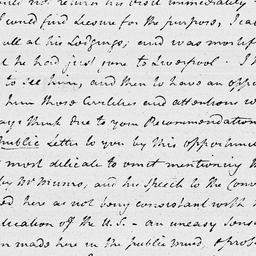 would not return his visit immediately
would find Leisure for the purpose, I ca
all at his Lodgings, and was mortif
he had just gone to Liverpool. I
to see him, and then to have an oppo
him those Civilities and attentions w
ays think due to your Recommendation
Public Letter to you by this opportuni
most delicate to omit mentioning th
by Mr Munro, and his Speech to the Conv
ed here as not being consistant with
ication of the U.S. - an uneasy Sens
n made here in the public mind,